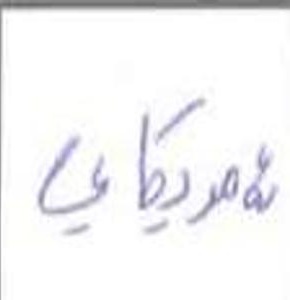 ئەمەریکایی